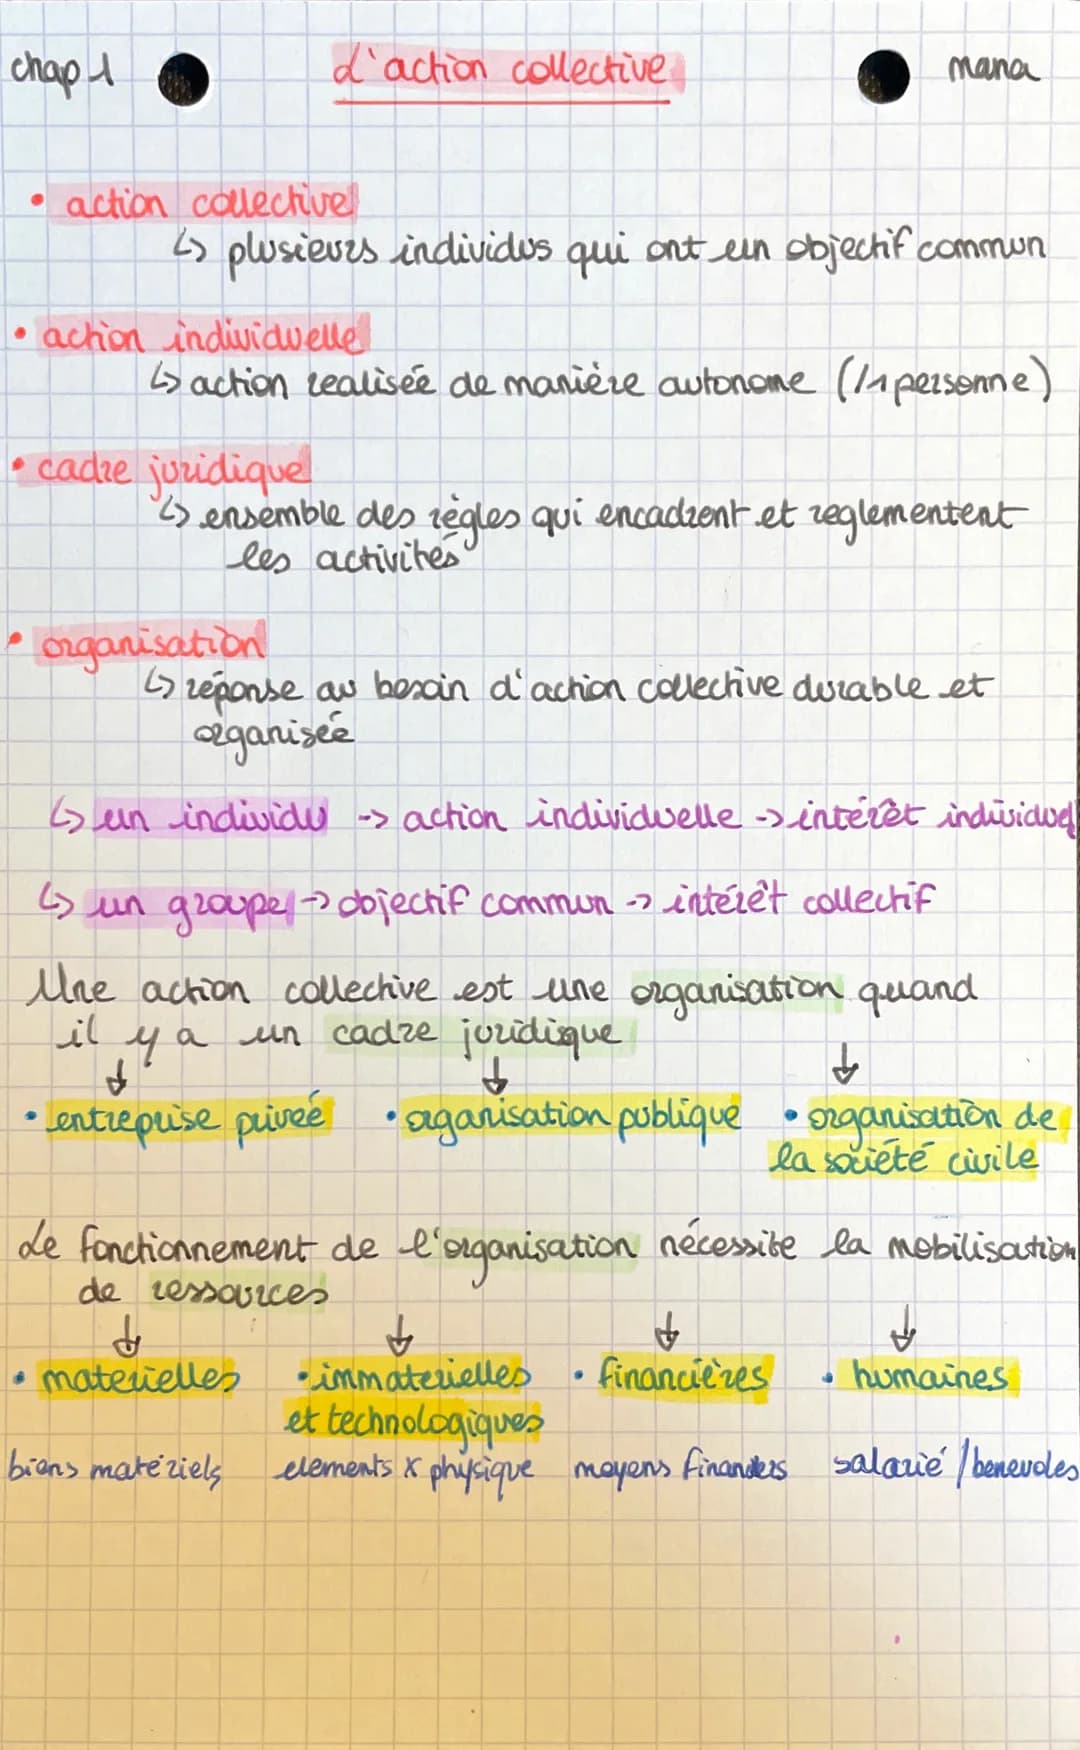 chap 1
L'action collective
mana
• action collective
↳ plusieurs individus qui ont un objectif commun
• action individuelle
↳ action realisée de manière autonome (/1 personne)
• cadre juridique
↳ ensemble des règles qui encadrent et reglementent
les activités
• organisation
↳ réponse au besoin d'action collective durable et
organisée
↳ un individu -> action individuelle -> intérêt individuel
↳ un groupe -> objectif commun -> intérêt collectif
Une action collective est une organisation quand
il y a un cadre juridique
↓ ↓ ↓
• entreprise privée • organisation publique • organisation de
la société civile
Le fonctionnement de l'organisation nécessite la mobilisation
de ressources
↓ ↓ ↓ ↓
• materielles • immaterielles • financières • humaines
et technologiques
biens matériels elements x physique moyens financiers salarié / benevoles